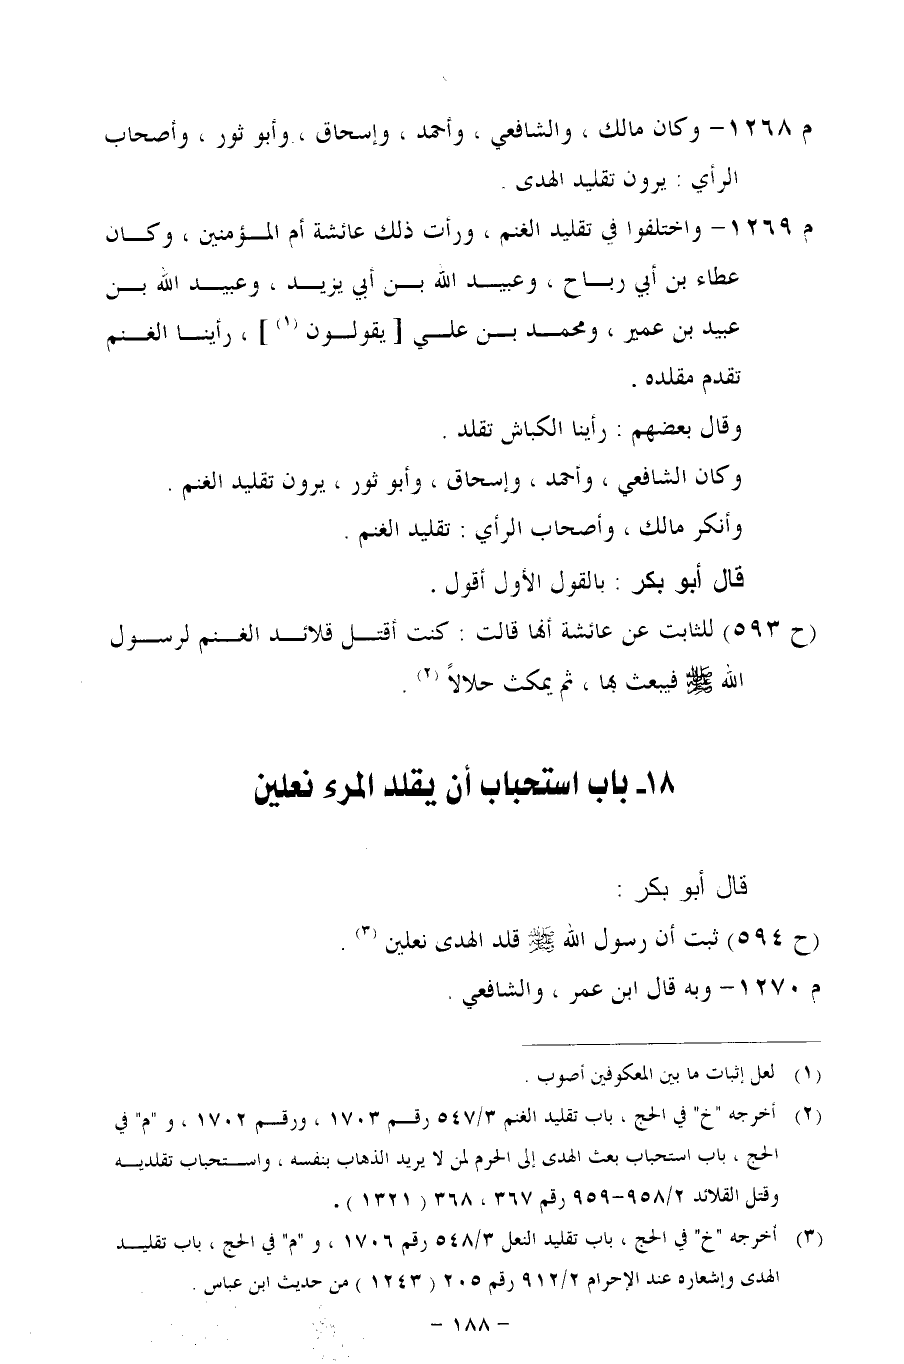 م ١٢٦٨- وكان مالك ، والشافعي ، وأحمد ، وإسحاق ، وأبو ثور ، وأصحاب
الرأي : يرون تقليد الهدى .
م ١٢٦٩- واختلفوا في تقليد الغنم ، ورأت ذلك عائشة أم المؤمنين ، وكان
عطاء بن أبي رباح ، وعبيد الله بن أبي يزيد ، وعبيد الله بن
عبيد بن عمير ، ومحمد بن علي [ يقولون (١) ] ، رأينا الغنم
تقدم مقلده .
وقال بعضهم : رأينا الكباش تقلد .
وكان الشافعي ، وأحمد ، وإسحاق ، وأبو ثور ، يرون تقليد الغنم .
وأنكر مالك ، وأصحاب الرأي : تقليد الغنم .
قال أبو بكر : بالقول الأول أقول .
(ح ٥٩٣) للثابت عن عائشة أنها قالت : كنت أقتل قلائد الغنم لرسول
الله ﷺ فيبعث بها ، ثم يمكث حلالاً (٢) .
١٨ـ باب استحباب أن يقلد المرء نعلين
قال أبو بكر :
(ح ٥٩٤) ثبت أن رسول الله ﷺ قلد الهدى نعلين (٣) .
م ١٢٧٠- وبه قال ابن عمر ، والشافعي .
(١) لعل إثبات ما بين المعكوفين أصوب .
(٢) أخرجه "خ" في الحج ، باب تقليد الغنم ٥٤٧/٣ رقم ١٧٠٣ ، ورقم ١٧٠٢ ، و "م" في
الحج ، باب استحباب بعث الهدى إلى الحرم لمن لا يريد الذهاب بنفسه ، واستحباب تقلديه
وقتل القلائد ٩٥٨/٢-٩٥٩ رقم ٣٦٧ ، ٣٦٨ ( ١٣٢١ ) .
(٣) أخرجه "خ" في الحج ، باب تقليد النعل ٥٤٨/٣ رقم ١٧٠٦ ، و "م" في الحج ، باب تقليد
الهدى وإشعاره عند الإحرام ٩١٢/٢ رقم ٢٠٥ ( ١٢٤٣ ) من حديث ابن عباس .
- ١٨٨ -